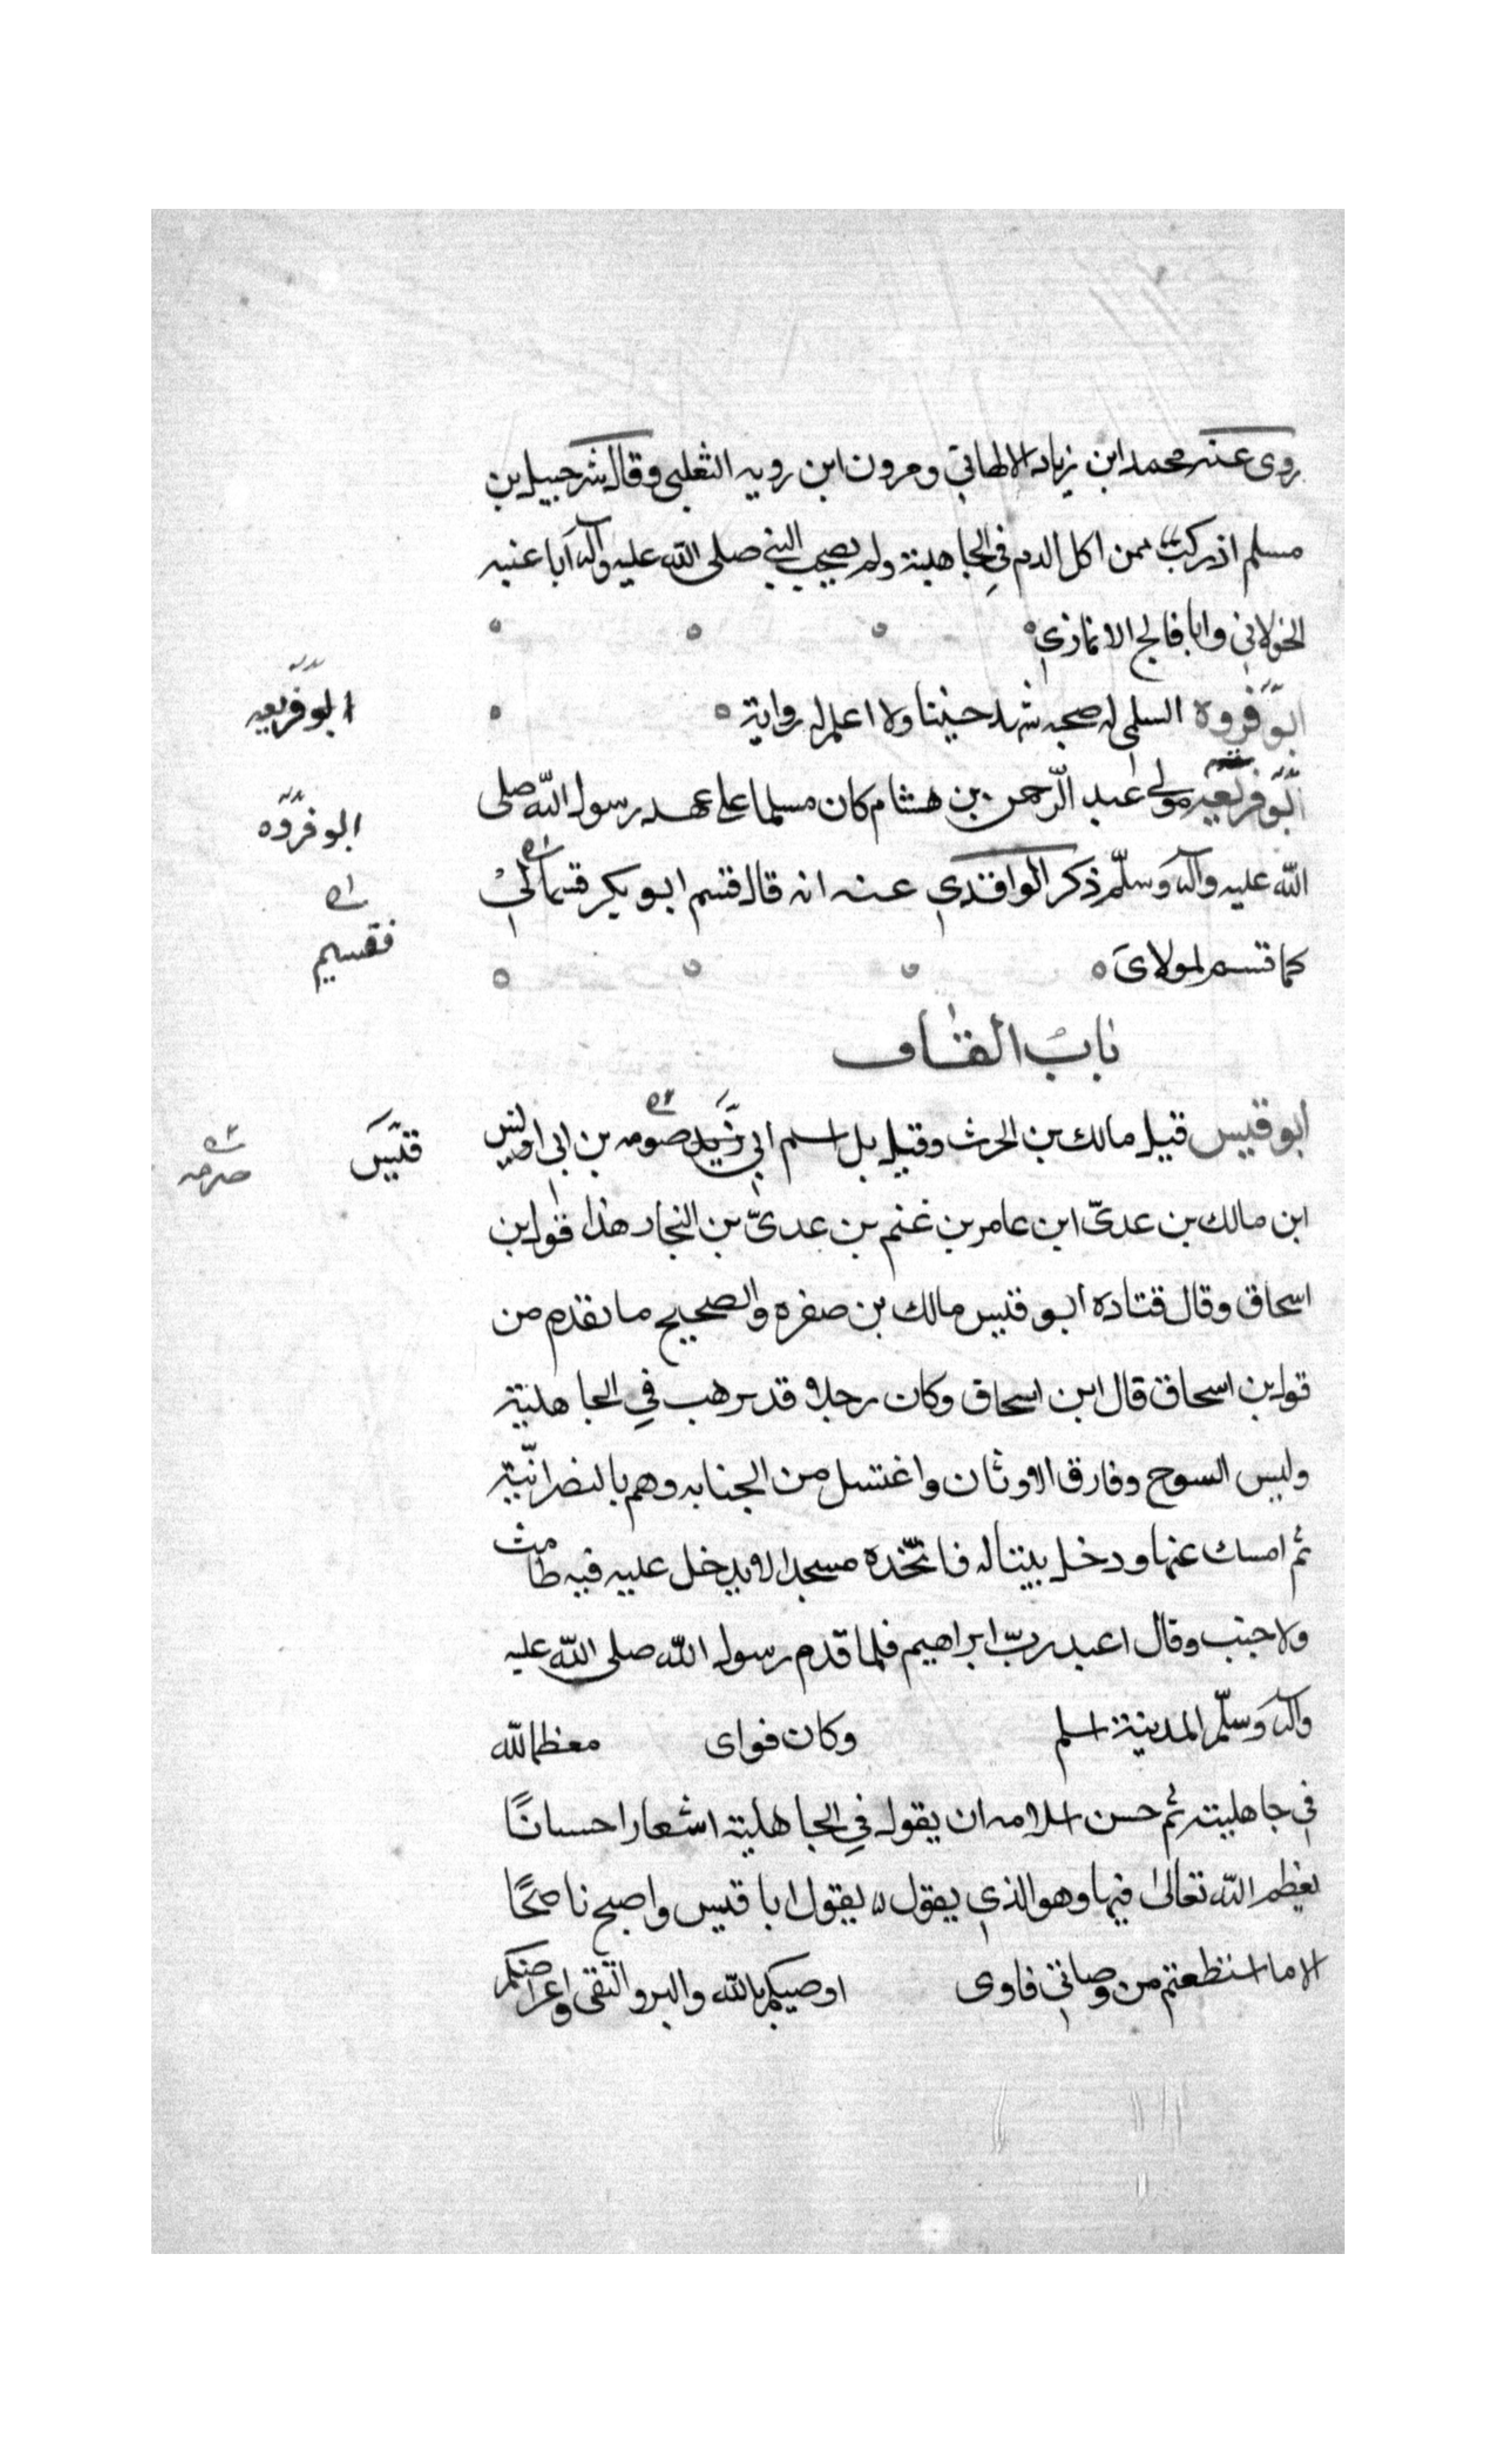 روى عنه محمد ابن زياد الالهاني ومرون ابن رويه الثعلبى وقال شرحبيل بن
مسلم ادركت ممن اكل الدم في الجاهلية ولم يصحب النبي صلى الله عليه وآله ابا عنبه
الخولانى وابا فالج الانمازي
ابو فروة السلمى له صحبه شهد حنينا ولا اعلم له رواية
ابو فريعه
ابو فريعه مولى عبد الرحمن بن هشام كان مسلما على عهد رسول الله صلى
ابو فروه
الله عليه وآله وسلم ذكر الواقدي عنه انه قال قسم ابو بكر قسما لي
فقسيم
كما قسم لمولاى
باب القاف
ابو قيس قيل مالك بن الحرث وقيل بل اسم ابي صومه بن ابي اويس
قيس
صرمه
ابن مالك بن عدي ابن عامر بن غنم بن عدي بن النجار هذا قول ابن
اسحاق وقال قتاده ابو قيس مالك بن صفره والصحيح ما تقدم من
قول ابن اسحاق قال ابن اسحاق وكان رجلا قد ترهب في الجاهلية
ولبس السوح وفارق الاوثان واغتسل من الجنابه وهم بالنصرانية
ثم امسك عنها ودخل بيتا له فاتخذه مسجدا لا يدخل عليه فيه طامث
ولا جنب وقال اعبد رب ابراهيم فلما قدم رسول الله صلى الله عليه
وآله وسلم المدينة اسلم وكان فواى معظما لله
في جاهليته ثم حسن اسلامه ان يقول في الجاهلية اشعارا حسانا
يعظم الله تعالى فيها وهو الذي يقول يقول ابا قيس واصبح ناصحا
الا ما استطعتم من وصاتي فاوى اوصيكم بالله والبر والتقى واعراضكم